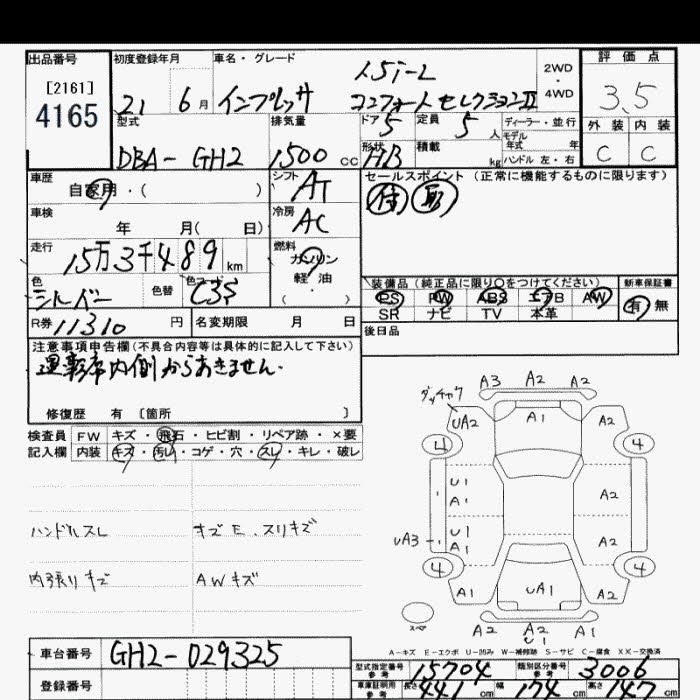 出品番号 初度登録年月 車名・グレード 評価点
[2161] 1.5i-L 2WD
4165 21 6月 インプレッサ コンフォートセレクションII ・4WD 3.5
型式 排気量 ドア 5 定員 5人 ディーラー・並行 外装 内装
DBA-GH2 1500cc 形状 HB 積載 kg モデル年式 年 C C
ハンドル 左・右
車歴 自家用・( ) シフト AT セールスポイント (正常に機能するものに限ります)
車検 年 月( 日) 冷房 AC
走行 15万3千489km 燃料 ガソリン
軽・油
( )
色 シルバー 色替 色コード C3S 装備品(純正品に限り○をつけてください) 新車保証書
PS PW ABS エアB AW 有 無
SR ナビ TV 本革
R券 11310円 名変期限 月 日 後日品
注意事項申告欄(不具合内容等は具体的に記入して下さい)
運転席内側からあきません.
修復歴 有 〔箇所 〕
検査員 FW キズ・飛石・ヒビ割・リペア跡・×要
記入欄 内装 キズ・汚レ・コゲ・穴・スレ・キレ・破レ
ハンドルスレ キズE.スリキズ
内張りキズ AWキズ
A3 A2 A2
UA2 A1 A2
4 4
U1 A1 A2
UA3 U1 A1 A2
4 4
A1 UA1 A2
スペア A2 A2 U1 A1
A-キズ E-エクボ U-凹み W-補修跡 S-サビ C-腐食 XX-交換済
車台番号 GH2-029325
型式指定番号 参考 15704 類別区分番号 参考 3006
登録番号 車庫証明用 参考 長さ 441cm 幅 174cm 高さ 147cm